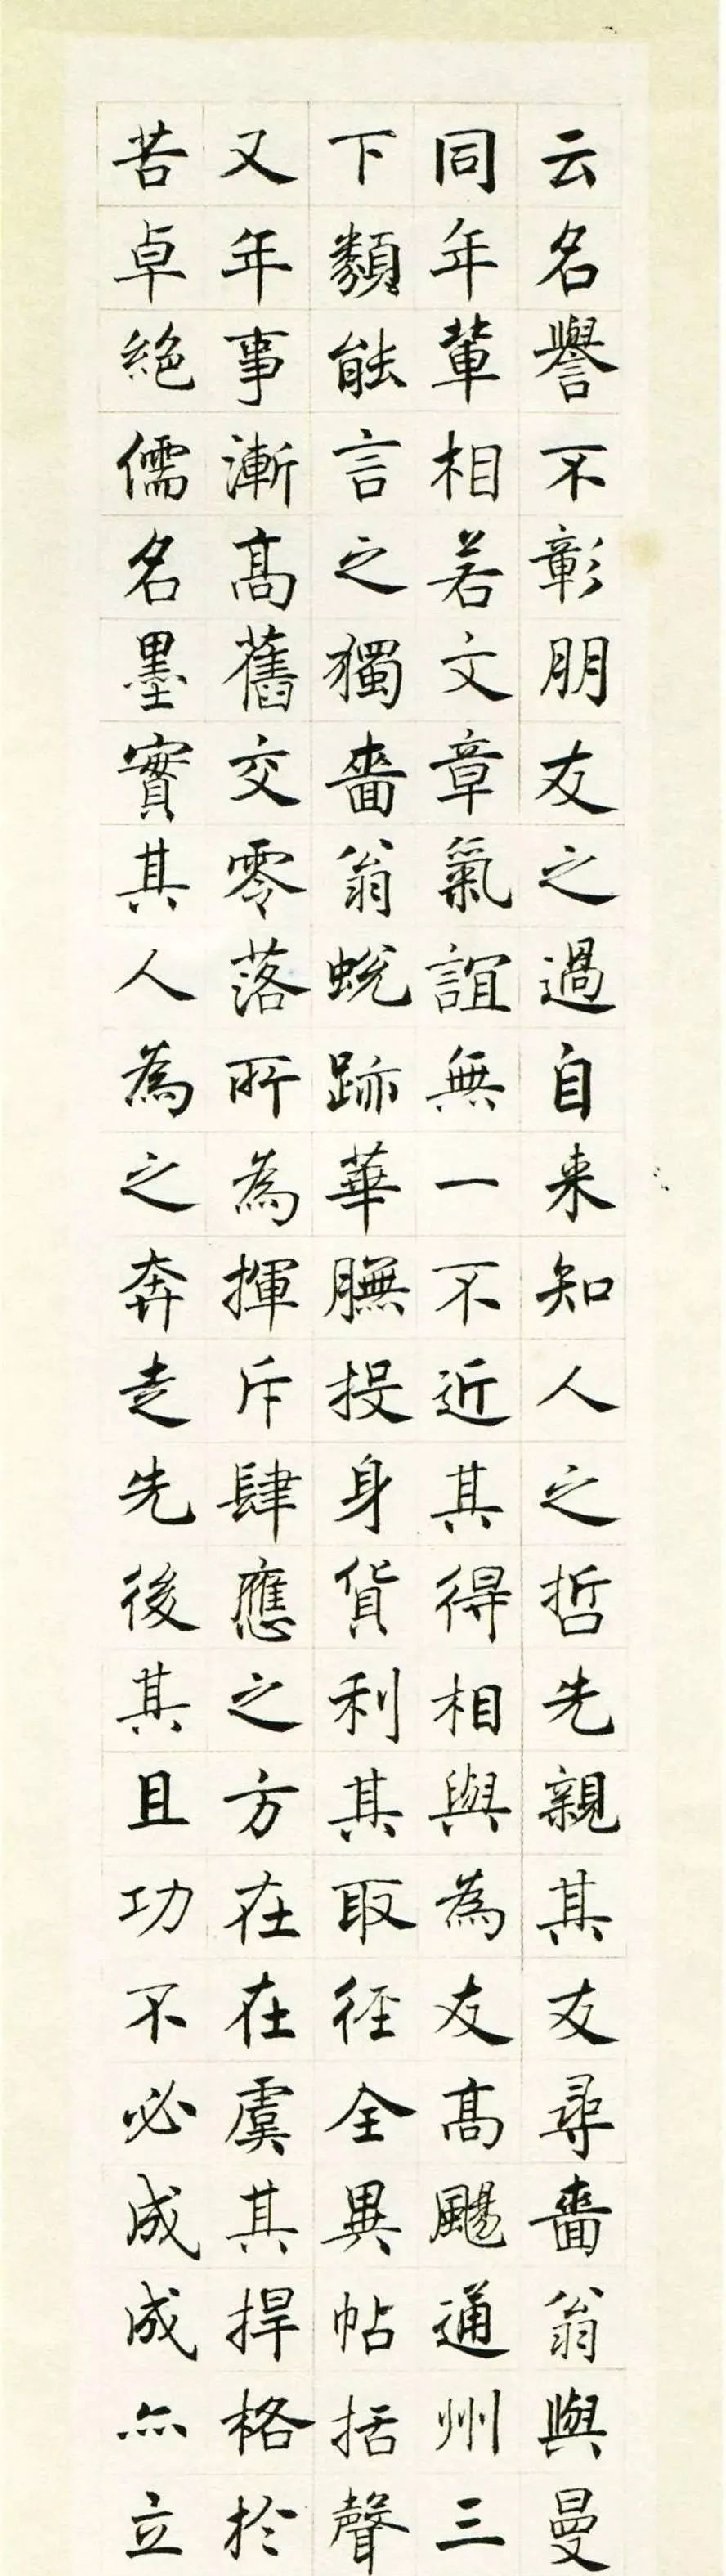 云名譽不彰朋友之過自来知人之哲先親其友尋嗇翁與曼
同年軰相若文章氣誼無一不近其得相與為友高颺通州三
下類能言之獨嗇翁蜕跡華膴投身貨利其取径全異帖括聲
又年事漸髙舊交零落所為揮斥肆應之方在在虞其捍格扵
苦卓絶儒名墨實其人為之奔走先後其且功不必成成亦立